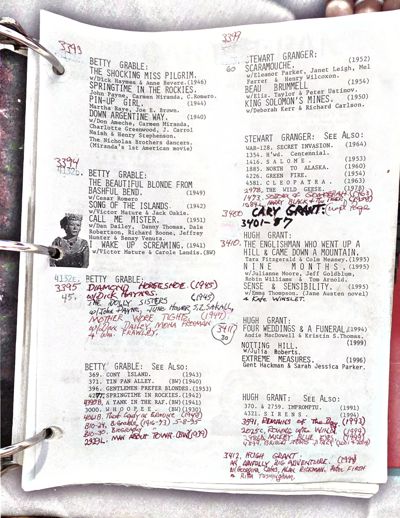 3393
BETTY GRABLE:
THE SHOCKING MISS PILGRIM.
w/Dick Haymes & Anne Revere.(1946)
SPRINGTIME IN THE ROCKIES.
John Payne, Carmen Miranda, C.Romero.
PIN-UP GIRL. (1944)
Martha Raye, Joe E. Brown.
DOWN ARGENTINE WAY. (1940)
w/Don Ameche, Carmen Miranda,
Charlotte Greenwood, J. Carrol
Naish & Henry Stephenson.
The Nicholas Brothers dancers.
(Miranda's 1st American movie)
3394
BETTY GRABLE:
THE BEAUTIFUL BLONDE FROM
BASHFUL BEND. (1949)
w/Cesar Romero
SONG OF THE ISLANDS. (1942)
w/Victor Mature & Jack Oakie.
CALL ME MISTER. (1951)
w/Dan Dailey, Danny Thomas, Dale
Robertson, Richard Boone, Jeffrey
Hunter & Benay Venuta.
I WAKE UP SCREAMING. (1941)
w/Victor Mature & Carole Landis.(BW)
BETTY GRABLE:
3395 DIAMOND HORSESHOE (1945)
45. w/DICK HAYMES.
THE DOLLY SISTERS (1945)
w/JOHN PAYNE, JUNE HAVER, S.Z. SAKALL
MOTHER WORE TIGHTS (1947)
w/DAN DAILEY, MONA FREEMAN
3411
30
BETTY GRABLE: SEE ALSO:
369. CONY ISLAND. (1943)
371. TIN PAN ALLEY. (BW)(1940)
396. GENTLEMEN PREFER BLONDES.(1953)
SPRINGTIME IN ROCKIES. (1942)
A YANK IN THE RAF.(BW)(1941)
3000. W H O O P E E. (BW)(1930)
810-30. BIOGRAPHY
MAN ABOUT TOWN (BW)(1939)
3399
60
STEWART GRANGER: (1952)
SCARAMOUCHE.
w/Eleanor Parker, Janet Leigh, Mel
Farrer & Henry Wilcoxon.
BEAU BRUMMELL (1954)
w/Eliz. Taylor & Peter Ustinov.
KING SOLOMON'S MINES. (1950)
w/Deborah Kerr & Richard Carlson.
STEWART GRANGER: SEE ALSO:
WAR-128. SECRET INVASION. (1964)
1354. H'wd. Centennial.
1416. S A L O M E. (1953)
1885. NORTH TO ALASKA. (1960)
4226. GREEN FIRE. (1954)
4581. C L E O P A T R A (1963)
2978. THE WILD GEESE. (1978)
3400 CARY GRANT:
3401-87
HUGH GRANT:
3410. THE ENGLISHMAN WHO WENT UP A
HILL & CAME DOWN A MOUNTAIN.
Tara Fitzgerald & Colm Meaney.(1995)
N I N E M O N T H S. (1995)
w/Julianne Moore, Jeff Goldblum,
Robin Williams & Tom Arnold.
SENSE & SENSIBILITY. (1995)
w/Emma Thompson. (Jane Austen novel)
& KATE WINSLET.
HUGH GRANT:
FOUR WEDDINGS & A FUNERAL.(1994)
Andie MacDowell & Kristin S.Thomas.
NOTTING HILL. (1999)
w/Julia Roberts.
EXTREME MEASURES. (1996)
Gent Hackman & Sarah Jessica Parker.
HUGH GRANT: SEE ALSO:
370. & 2759. IMPROMPTU. (1991)
4321. S I R E N S. (1994)
3991. REMAINS OF THE DAY (1993)
3412. HUGH GRANT:
AN AWFULLY BIG ADVENTURE. (1994)
w/GEORGINA CATES, ALAN RICKMAN, PETER FIRTH
& RITA TUSHINGHAM.